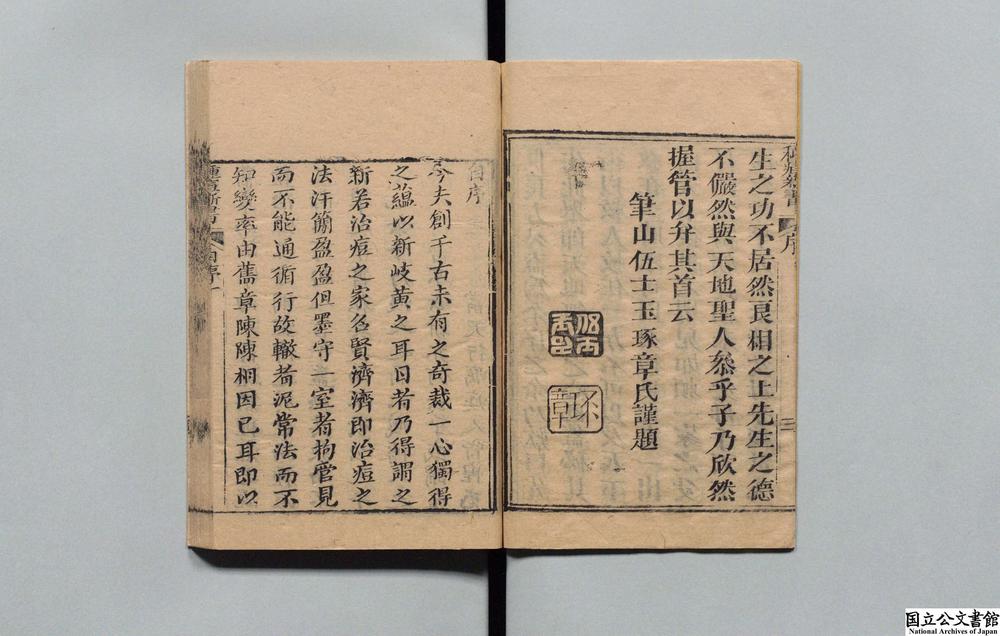 生之功不居然良相之上先生之德
不儼然與天地聖人叅乎予乃欣然
握管以弁其首云
筆山伍士玉琢章氏謹題
琢章
序
三
自序
今夫創千古未有之奇裁一心獨得
之蘊以新岐黃之耳目者乃得謂之
新若治痘之家名賢濟濟即治痘之
法汗簡盈盈但墨守一室者拘管見
而不能通循行故轍者泥常法而不
知變率由舊章陳陳相因已耳即以
種痘新書
自序
一
国立公文書館
National Archives of Japan